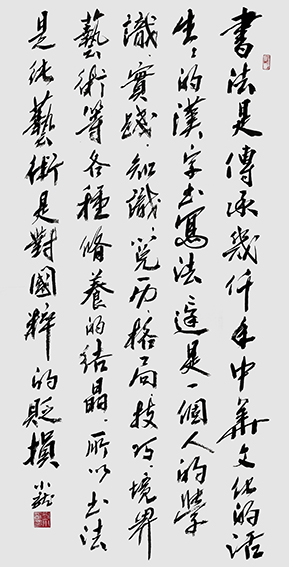 書法是傳承幾仟年中華文化的活
生々的漢字书寫法這是一個人的學
識實踐知識閱历格局技巧境界
藝術等各種脩養的結晶所以书法
是純藝術是對國粹的貶損